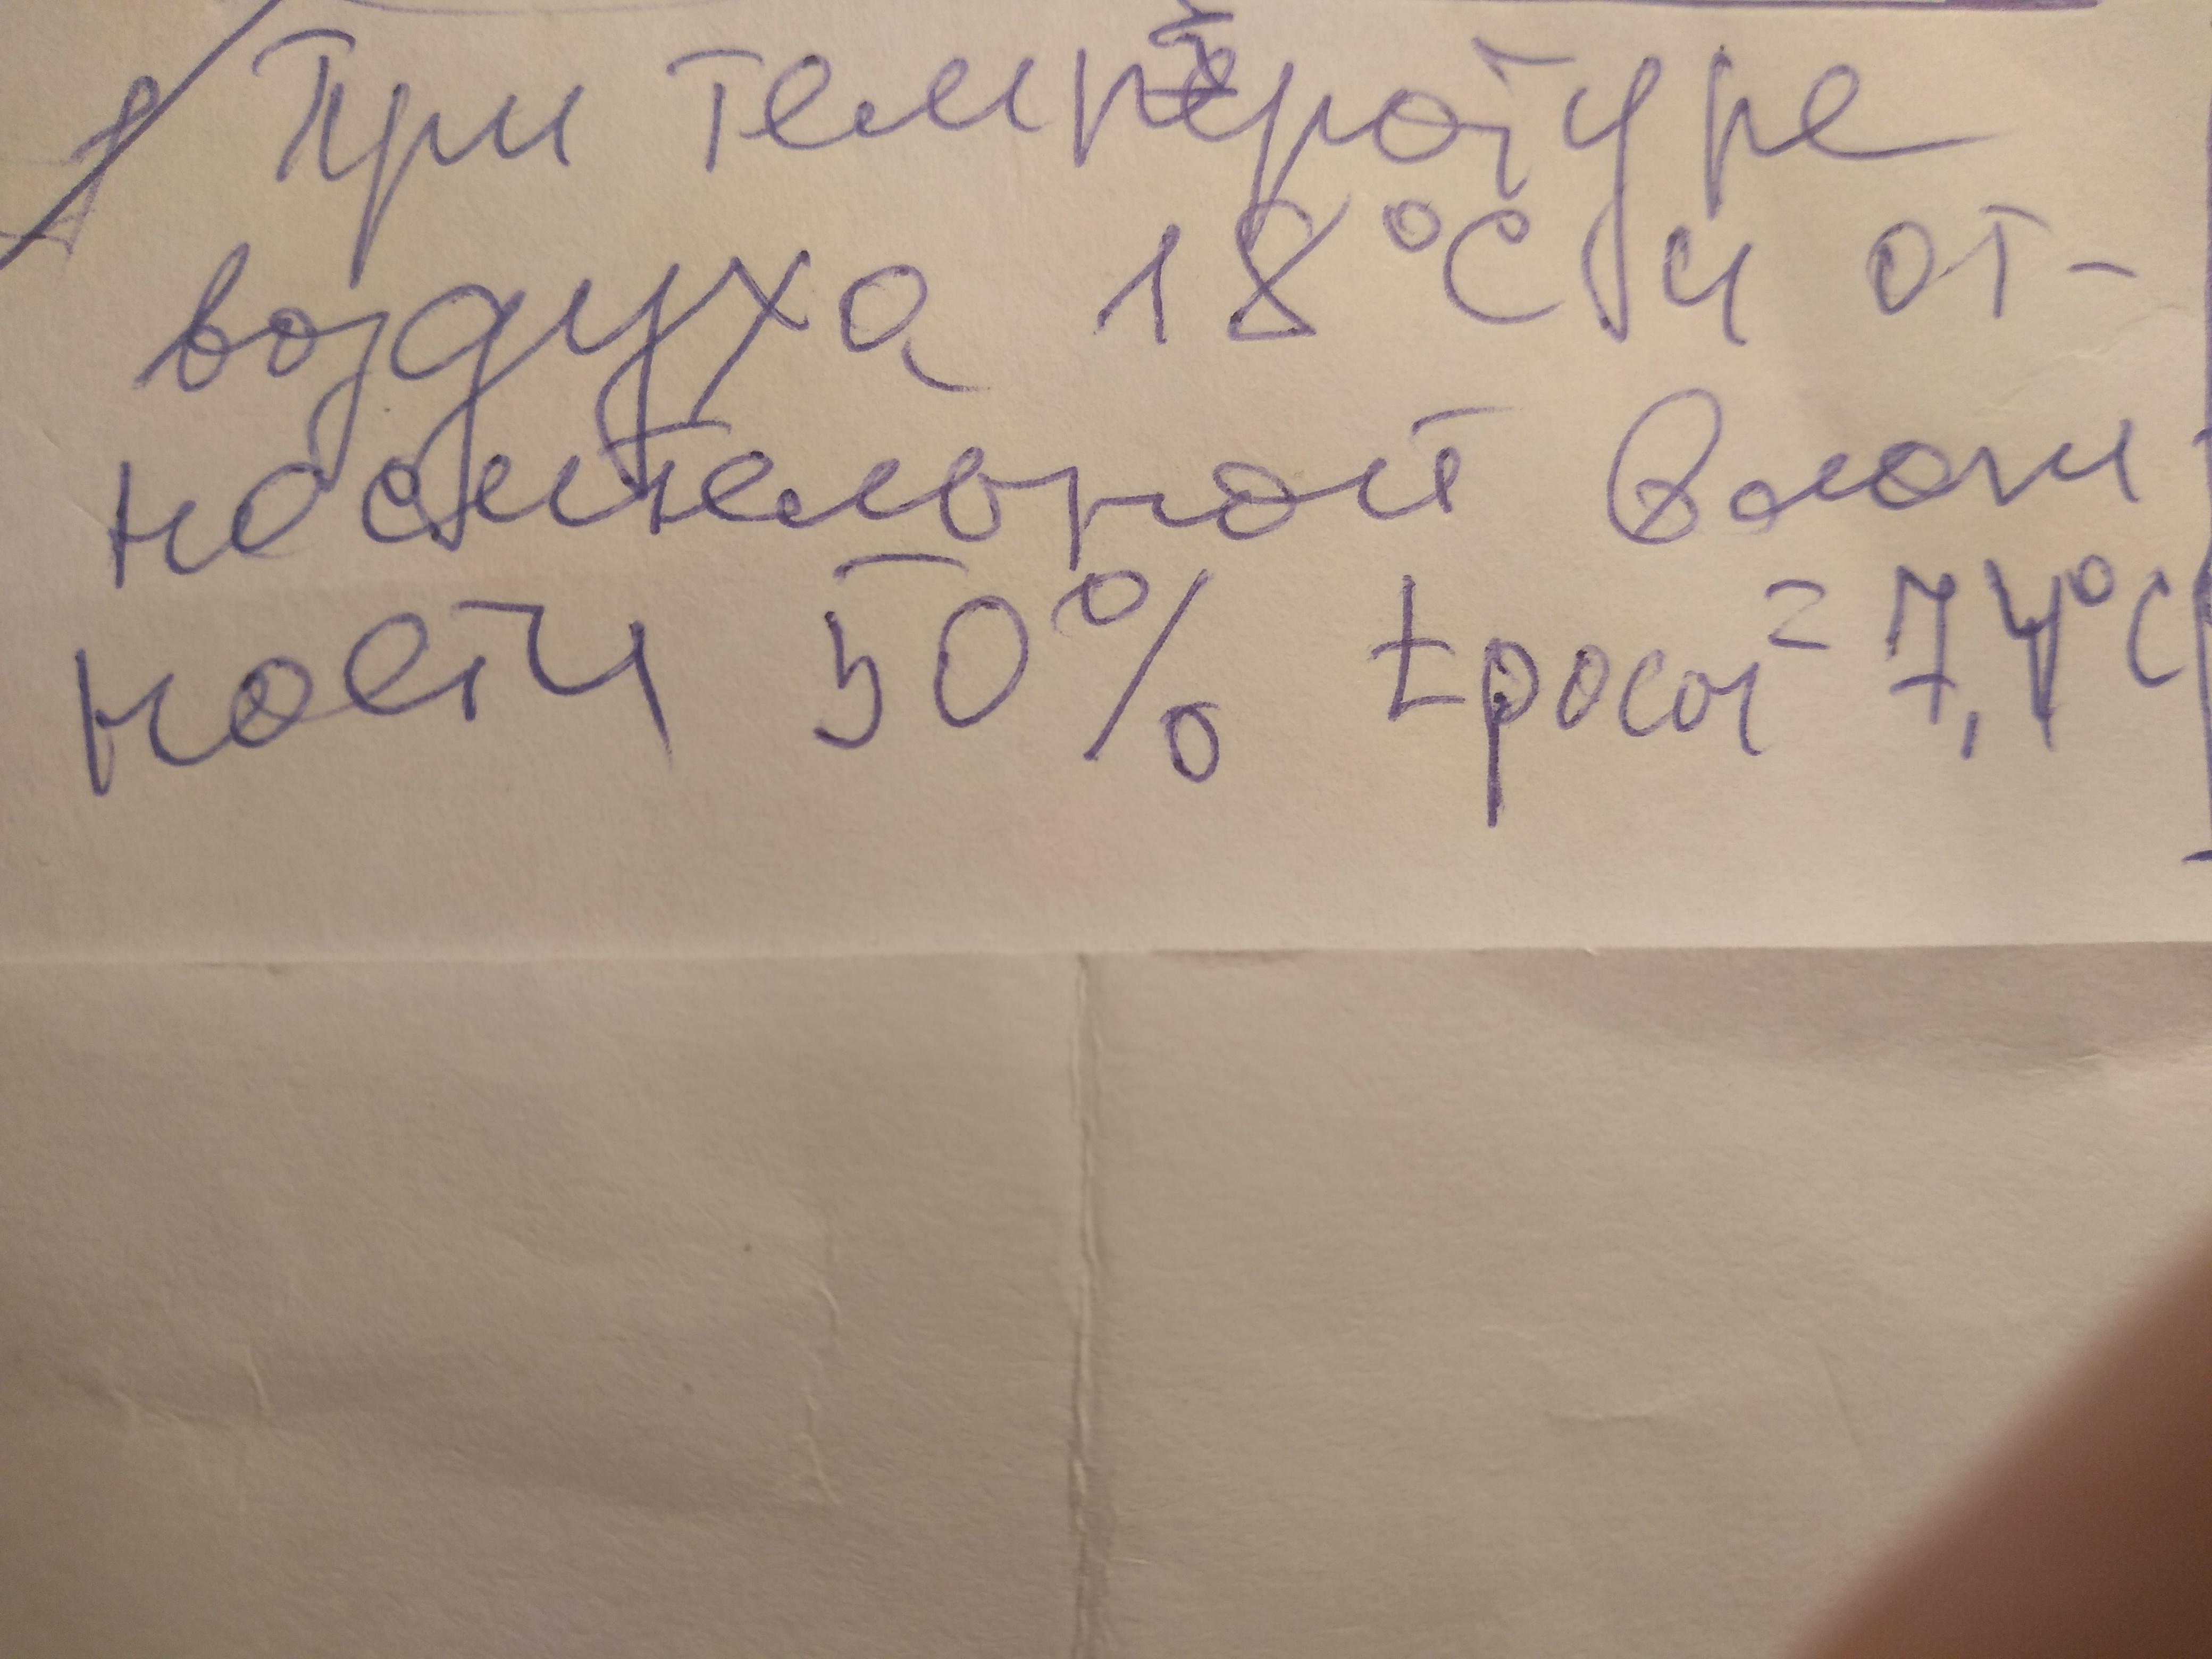 При температуре
воздуха 18°C и от-
носительной влаж
ности 50% tросы=7,4°C